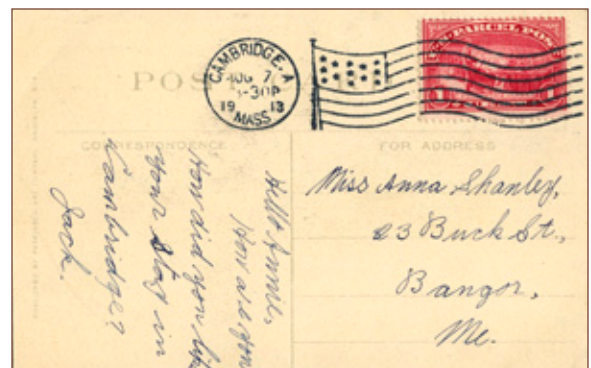 POST
CAMBRIDGE, A
AUG 7
-30P
1913
MASS
PARCEL POST
1
1
CORRESPONDENCE
FOR ADDRESS
Hello Annie,
How are you
How did you like
your stay in
Cambridge?
Jack.
Miss Anna Shanley,
23 Buck St.,
Bangor,
Me.